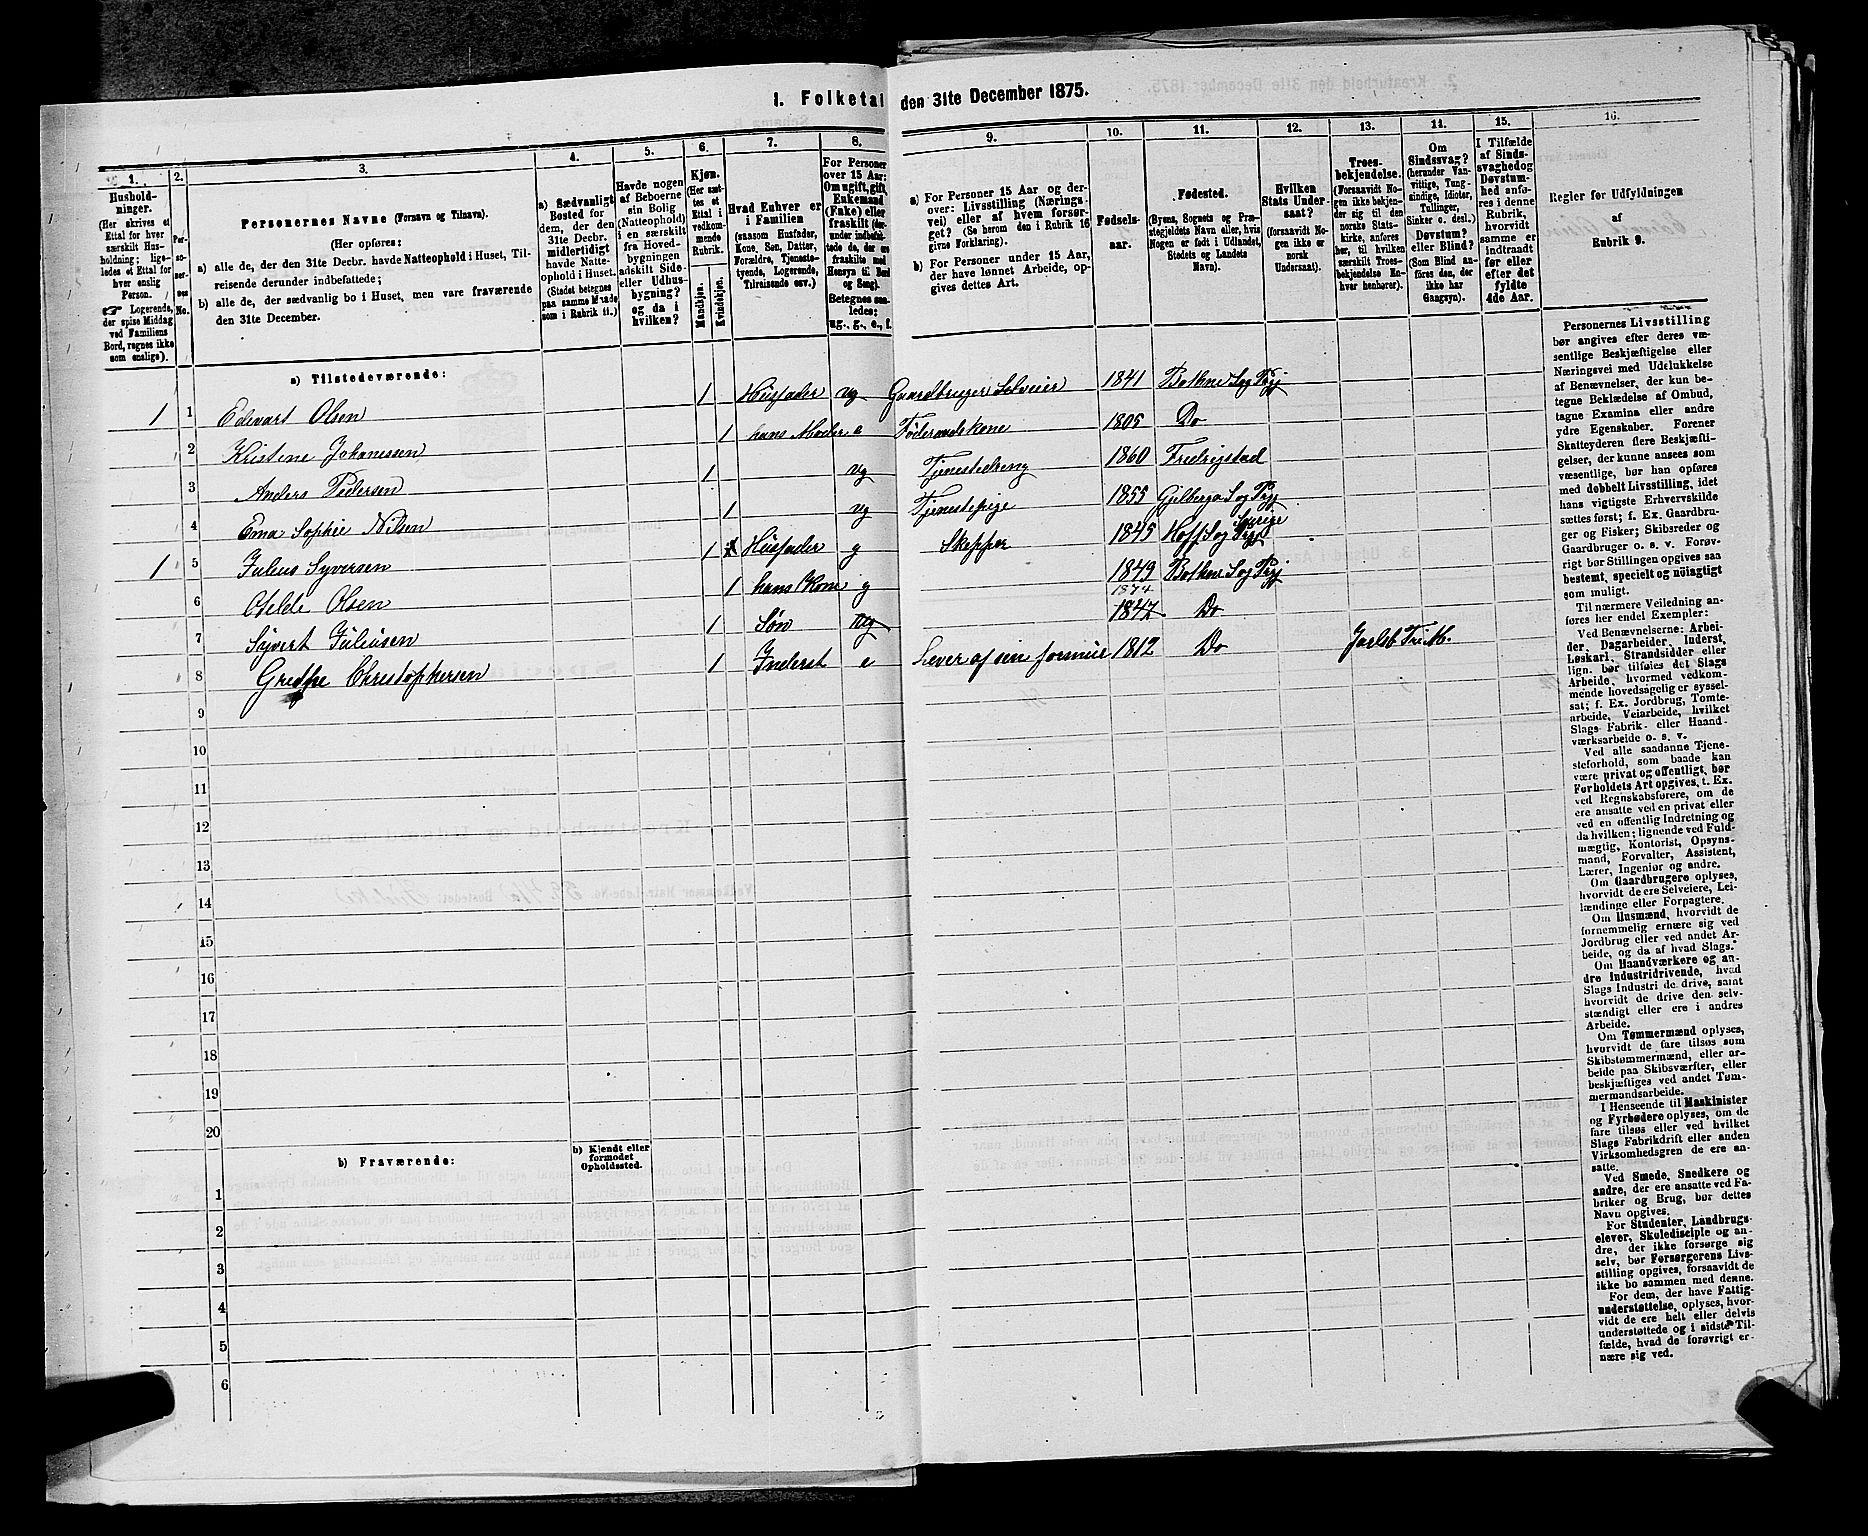 1. Folketal den 31te December 1875.
1. 2. 3. 4. 5. 6. 7. 8. 9. 10. 11. 12. 13. 14. 15. 16.
Hushold-
ninger.
(Her skrives et
Ettal for hver
særskilt Hus-
holdning; lige-
ledes et Ettal for
hver enslig
Person.
☛ Logerende,
der spise Middag
ved Familiens
Bord, regnes ikke
som enslige).
Per-
so-
ner-
nes
No.
Personernes Navne (Fornavn og Tilnavn).
(Her opføres:
a) alle de, der den 31te Decbr. havde Natteophold i Huset, Til-
reisende derunder indbefattede;
b) alle de, der sædvanlig bo i Huset, men vare fraværende
den 31te December.
a) Sædvanligt
Bosted for
dem, der den
31te Decbr.
midlertidigt
havde Natte-
ophold i Huset.
(Stedet betegnes
paa samme Maade
som i Rubrik 11.)
Havde nogen
af Beboerne
sin Bolig
(Natteophold)
i en særskilt
fra Hoved-
bygningen
adskilt Side-
eller Udhus-
bygning?
og da i
hvilken?
Kjøn.
(Her sæt-
tes et
Ettal i
vedkom-
mende
Rubrik.
Mandkjøn.
Kvindekjøn.
Hvad Enhver er
i Familien
(saasom Husfader,
Kone, Søn, Datter,
Forældre, Tjeneste-
tyende, Logerende,
Tilreisende osv.)
For Personer
over 15 Aar:
Om ugift, gift,
Enkemand
(Enke) eller
fraskilt (der-
under indbefat-
tede de, der ere
fraskilte med
Hensyn til Bord
og Seng).
Betegnes saa-
ledes:
ug., g., e., f.
a) For Personer 15 Aar og der-
over: Livsstilling (Nærings-
vei) eller af hvem forsør-
get? (Se herom den i Rubrik 16
givne Forklaring).
b) For Personer under 15 Aar,
der have lønnet Arbeide, op-
gives dettes Art.
Fødsels-
aar.
Fødested.
(Byens, Sognets og Præ-
stegjeldets Navn eller, hvis
Nogen er født i Udlandet,
Stedets og Landets
Navn).
Hvilken
Stats Under-
saat?
(forsaavidt No-
gen ikke er
norsk
Undersaat).
Troes-
bekjendelse.
(Forsaavidt No-
gen ikke bekjen-
der sig til den
norske Stats-
kirke, anføres
her, til hvilken
særskilt Troes-
bekjendelse En-
hver henhører).
Om
Sindssvag?
(herunder Van-
vittige, Tung-
sindige, Idioter,
Tullinger,
Sinker o. desl.)
Døvstum?
eller Blind?
(Som Blind an-
føres den, der
ikke har
Gangsyn).
I Tilfælde
af Sinds-
svaghed og
Døvstum-
hed anfø-
res i denne
Rubrik,
hvorvidt
samme er
indtraadt
før eller
efter det
fyldte
4de Aar.
Regler for Udfyldningen
af
Rubrik 9.
a) Tilstedeværende:
1 1 Edevart Olsen 1 Husfader ug Gaardbruger Selveier 1841 Bothne Sog Prgj
2 Kristine Johanssen 1 hans Moder e Føderaadskone 1805 Do
3 Anders Pedersen 1 ug Tjenestedreng 1860 Fredrigstad
4 Ema Sophie Nilsen 1 ug Tjenestepige 1855 Gilberga Sog Prgj Sverige
1 5 Julius Syversen 1 Husfader g Skepper 1845 Hoff Sog Prgj
6 Otelde Olsen 1 hans Kone g 1849 Bothne Sog Prgj
7 Syvert Juliusen 1 Søn ug 1874 1847 Do
8 Grethe Christophersen 1 Inderst e Lever af sin formue 1812 Do
9
10
11
12
13
14
15
16
17
18
19
20
b) Fraværende:
b) Kjendt eller
formodet
Opholdssted.
1
2
3
4
5
6
Personernes Livsstilling
bør angives efter deres væ-
sentlige Beskjæftigelse eller
Næringsvei med Udelukkelse
af Benævnelser, der kun be-
tegne Beklædelse af Ombud,
tagne Examina eller andre
ydre Egenskaber. Forener
Skatteyderen flere Beskjæfti-
gelser, der kunne ansees som
væsentlige, bør han opføres
med dobbelt Livsstilling, idet
hans vigtigste Erhvervskilde
sættes først; f. Ex. Gaardbru-
ger og Fisker; Skibsreder og
Gaardbruger o. s. v. Forøv-
rigt bør Stillingen opgives saa
bestemt, specielt og nöiagtigt
som muligt.
Til nærmere Veiledning an-
føres her endel Exempler:
Ved Benævnelserne: Arbei-
der, Dagarbeider, Inderst,
Løskarl, Strandsidder eller
lign. bør tilføies det Slags
Arbeide, hvormed vedkom-
mende hovedsagelig er syssel-
sat; f. Ex. Jordbrug, Tomte-
arbeide, Veiarbeide, hvilket
Slags Fabrik- eller Haand-
værksarbeide o. s. v.
Ved alle saadanne Tjene-
steforhold, som baade kan
være privat og offentligt, bør
Forholdets Art opgives, t. Ex.
ved Regnskabsførere, om de
ere ansatte ved en privat eller
ved en offentlig Indretning og
da hvilken; lignende ved Fuld-
mægtig, Kontorist, Opsyns-
mand, Forvalter, Assistent,
Lærer, Ingeniør og andre.
Om Gaardbrugere oplyses,
hvorvidt de ere Selveiere, Lei-
lændinge eller Forpagtere.
Om Husmænd, hvorvidt de
fornemmelig ernære sig ved
Jordbrug eller ved andet Ar-
beide, og da af hvad Slags.
Om Haandværkere og an-
dre Industridrivende, hvad
Slags Industri de drive, samt
hvorvidt de drive den selv-
stændigt eller ere i andres
Arbeide.
Om Tømmermænd oplyses,
hvorvidt de fare tilsøs som
Skibstømmermænd, eller ar-
beide paa Skibsværfter, eller
beskjæftiges ved andet Tøm-
mermandsarbeide.
I Henseende til Maskinister
og Fyrbødere oplyses, om de
fare tilsøs eller ved hvilket
Slags Fabrikdrift eller anden
Virksomhedsgren de ere an-
satte.
Ved Smede, Snedkere og
andre, der ere ansatte ved Fa-
briker og Brug, bør dettes
Navn opgives.
For Studenter, Landbrugs-
elever, Skoledisciple og an-
dre, der ikke forsørge sig
selv, bør Forsørgerens Livs-
stilling opgives, forsaavidt de
ikke bo sammen med denne.
For dem, der have Fattig-
understøttelse, oplyses, hvor-
vidt de ere helt eller delvis
understøttede og i sidste Til-
fælde, hvad de forøvrigt er-
nære sig ved.